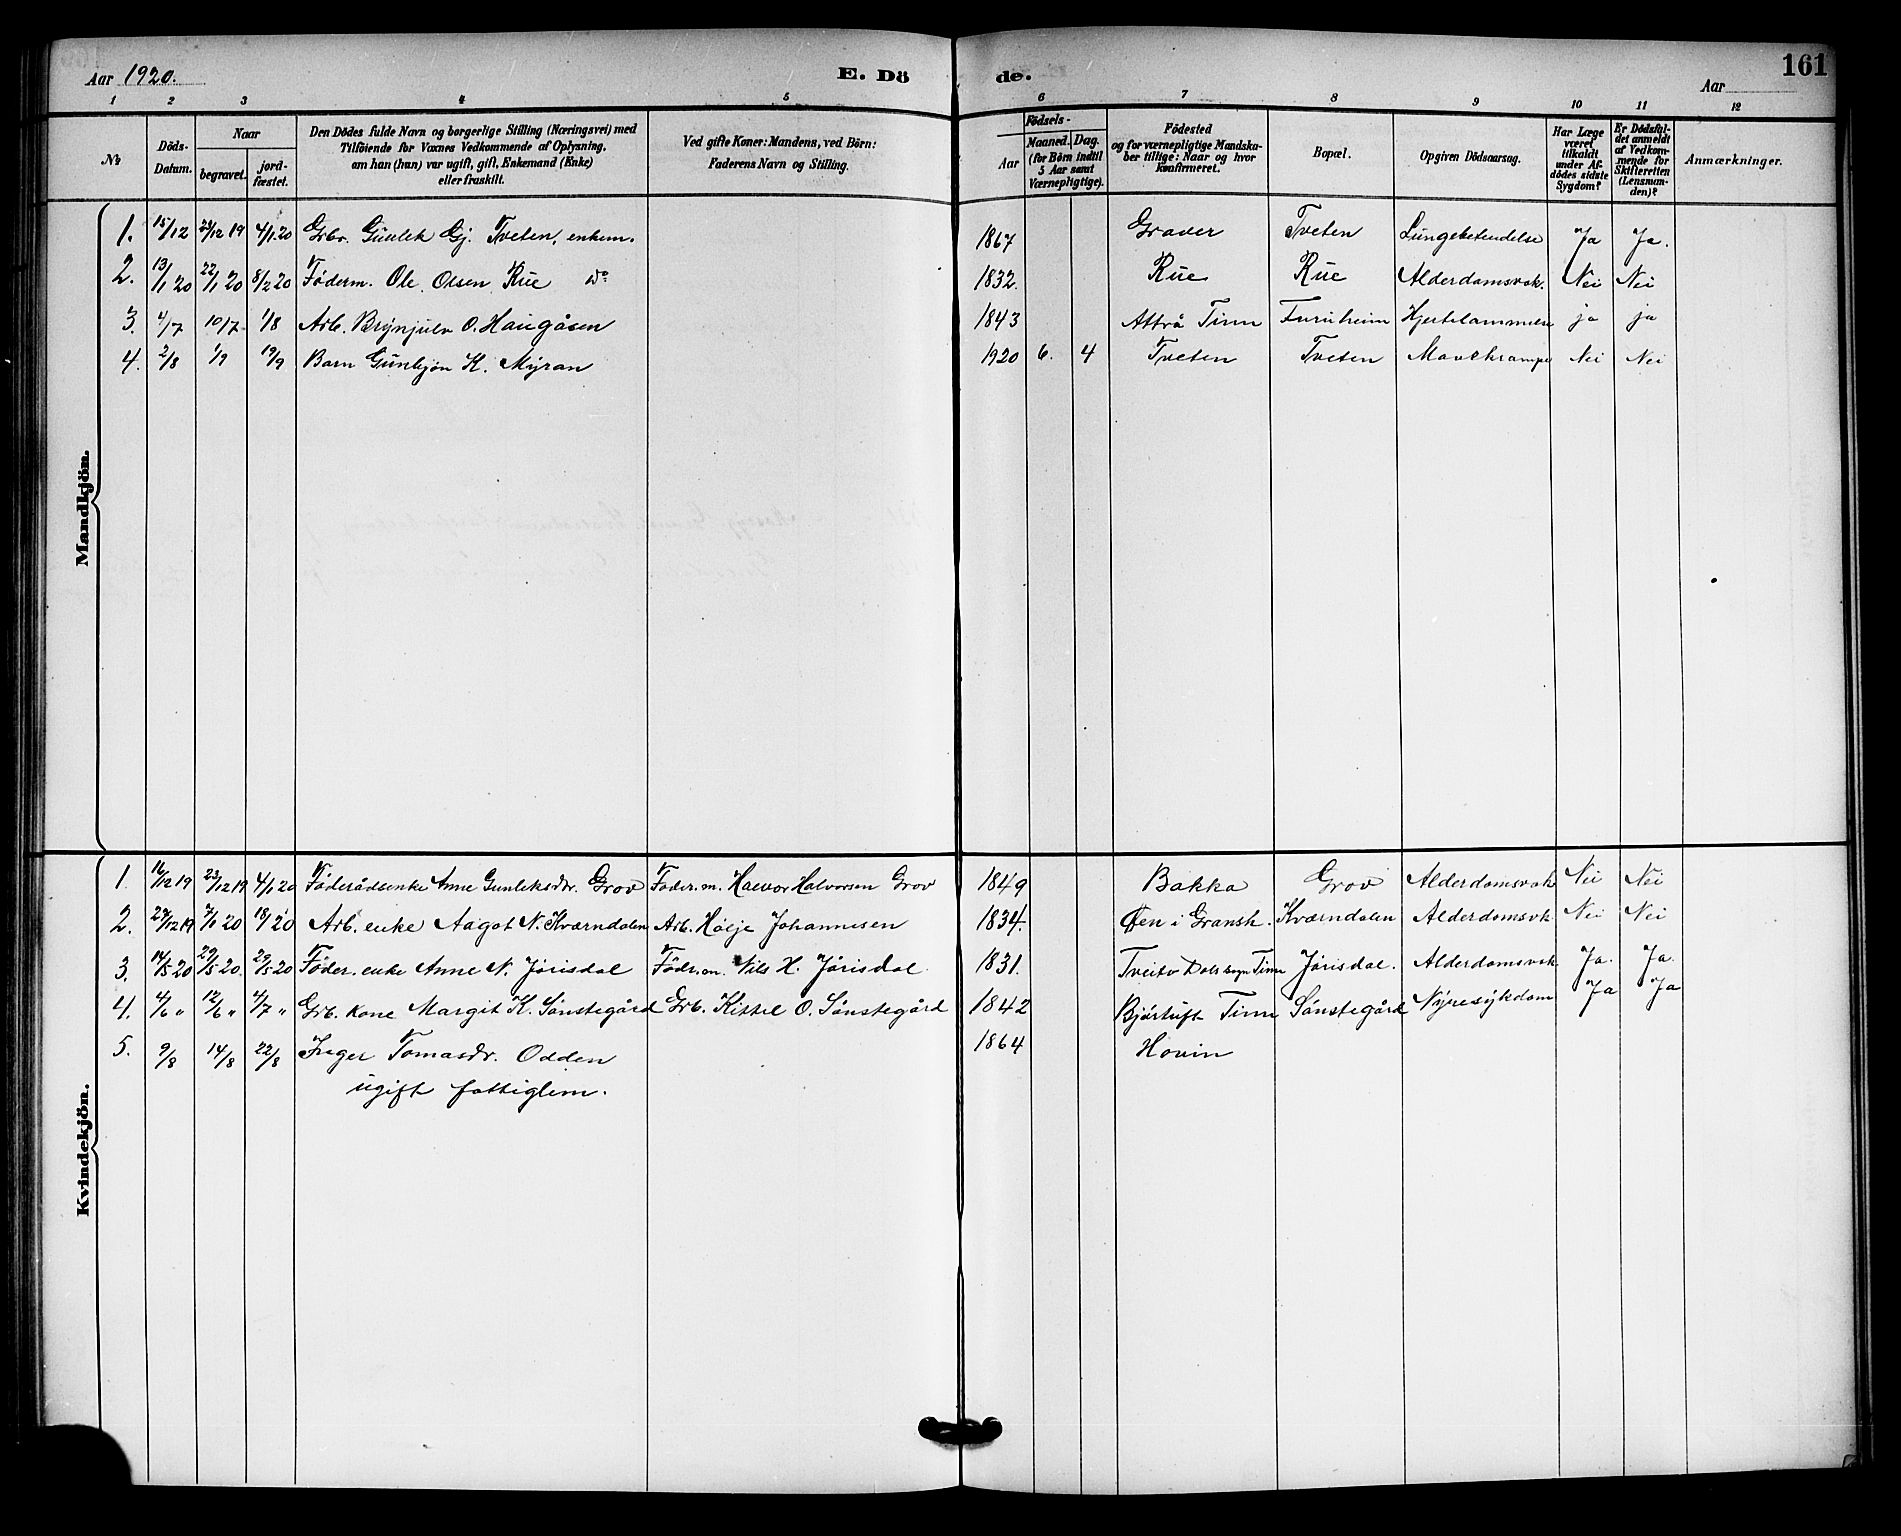 Aar 1920. E. Dö de. Aar 161
1 2 3 4 5 6 7 8 9 10 11 12
No
Döds-Datum.
Naar
begravet.
jord-fæstet.
Den Dödes fulde Navn og borgerlige Stilling (Næringsvei) med
Tilföiende for Voxnes Vedkommende af Oplysning,
om han (hun) var ugift, gift, Enkemand (Enke)
eller fraskilt.
Ved gifte Koner: Mandens, ved Börn:
Faderens Navn og Stilling.
Födsels-
Aar
Maaned. Dag.
(for Börn indtil
5 Aar samt
Værnepligtige).
Födested
og for værnepligtige Mandska-
ber tillige: Naar og hvor
Konfirmeret.
Bopæl.
Opgiven Dödsaarsag.
Har Læge
været
tilkaldt
under Af-
dödes sidste
Sygdom?
Er Dödsfal-
det anmeldt
af Vedkom-
mende for
Skifteretten
(Lensman-
den)?
Anmærkninger.
Mandkjön.
1. 15/12 19 4/1.20 Grbr. Gunlek Gj. Tveten, enkem. 1867 Graver Tveten Lungebetendelse Ja Ja.
2. 13/1 20 22/1 20 8/2 20 Föderm. Ole Olsen Rue Do 1832. Rue Rue Alderdomsvak. Nei Nei
3. 4/7 10/7 1/8 Arb. Brynjulv O. Haugåsen 1843 Attrå Tinn Furuheim Hjertelammelse ja ja
4. 2/8 1/9 19/9 Barn Gunbjön K. Myran 1920 6. 4 Tveten Tveten Mavekrampe Nei Nei
Kvindekjön.
1. 16/12 19 23/12 19 4/1 20 Föderådsenke Anne Gunleksdr. Grov Föder.m. Halvor Halvorsen Grov 1849 Bakka Grov Alderdomsvak Nei Nei
2. 12 19 7/1 20 18/1 20 Arb. enke Aagot N. Kværndalen Arb. Hölje Johannesen 1834. Öen i Gransh. Kværndalen Alderdomsvk. Nei Nei
3. 14/5 20 29/5 20. 29/5 20 Föder. enke Anne N. Jørisdal Födr.m. Nils H. Jørisdal 1831. Tveito Dals sogn Tinn Jørisdal. Alderdomsvak Ja. Ja.
4. 4/6 " 12/6 " 4/7 " Grb. kone Margit K. Sønstegård Grb. Kittil O. Sønstegård 1842 Bjørtuft Tinn Sønstegård Nyresykdom Ja Ja
5. 9/8 14/8 22/8 Inger Tomasdr. Odden 1864 Hovin
ugift fattiglem.